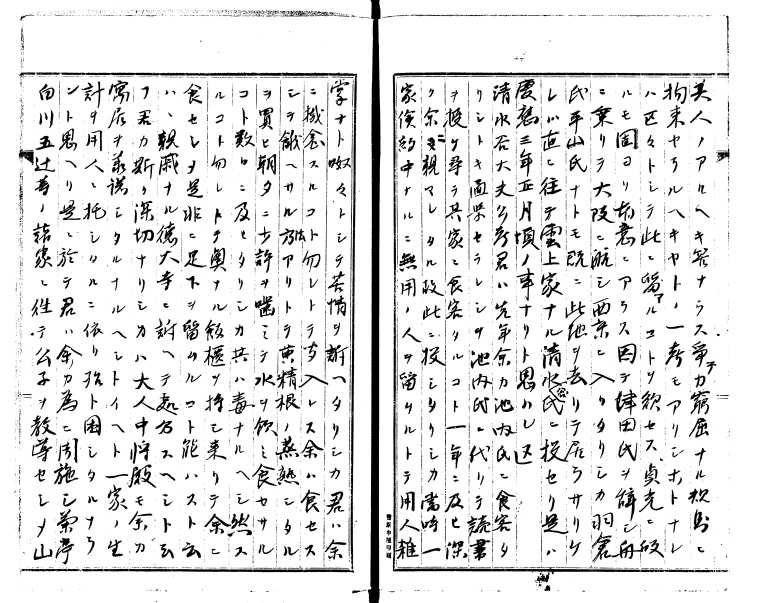 美人ノアルヘキ筈ナラス争テカ窮屈ナル規則ニ
拘束セラルヘキヤトノ一考モアリシホトナレ
ハ区々トシテ此ニ留マルコトヲ欲セス貞光ニ
ルモ固ヨリ本意ニアラス因テ津田氏ヲ辞シ舟
ニ乗リテ大阪ニ航シ西京ニ入リタリシカ羽倉
氏平山氏ナトモ既ニ此地ヲ去リテ居ラサリケ
レハ直ニ往テ雲上家ナル清水谷氏ニ投セリ是ハ
慶應三年正月頃ノ事ナリト思ハレ
清水谷大夫公考君ハ先年余カ池内氏ニ食客タ
リシトキ面學セラレシヲ池内氏ニ代リテ読書
ヲ授ケ尋テ其家ニ食客タルコト一年ニ及ヒ深
ク余ニ親マレタル故此ニ投シタリシカ當時一
家倹約中ナルニ無用ノ人ヲ留ムルトテ用人雑
掌ナト呶々トシテ苦情ヲ訴ヘタリシカ君ハ余
ニ機食スルコト勿レトテ入レス余ハ食セス
シテ餓ヘサル方法アリトテ黄精根ノ蒸熟シタル
ヲ買ヒ朝夕ニ少許ヲ噛ミテ水ヲ飲ミ食セサル
コト数日ニ及ヒタリシカ其ハ毒ナルヘシ然ス
ルコト勿レトテ奥ナル飯櫃ヲ持チ来リテ余ニ
食セシメ是非ニ足下ヲ留ムルコト能ハスト云
ハヽ親戚ナル徳大寺ニ訴ヘテ処分スヘシト云
フ君カ斯ク深切ナリシカハ大人中将殿モ余カ
寓居ヲ承諾シタルナルヘシトイヘト一家ノ生
計ヲ用人ニ托シタルニ依リ殆ト困シタルナラ
ント思ヘリ是ニ於テ君ハ余カ為ニ周施シ菊亭
白川五辻等ノ諸家ニ往テ公子ヲ教導セシメ山